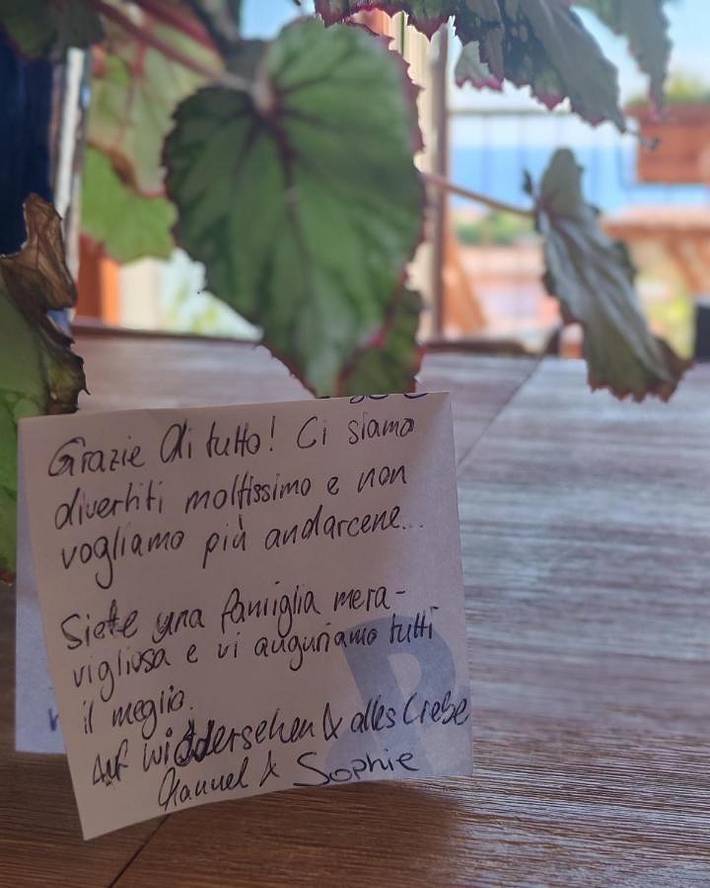 Grazie di tutto! Ci siamo
divertiti moltissimo e non
vogliamo più andarcene...
Siete una famiglia mera-
vigliosa e vi auguriamo tutti
il meglio.
Auf Widdersehen & alles Liebe
& Sophie